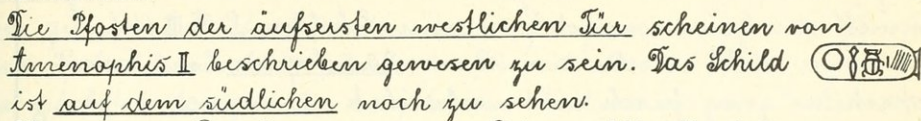 Die Pfosten der äufsersten westlichen Tür scheinen von
Amenophis II beschrieben gewesen zu sein. Das Schild
ist auf dem südlichen noch zu sehen.